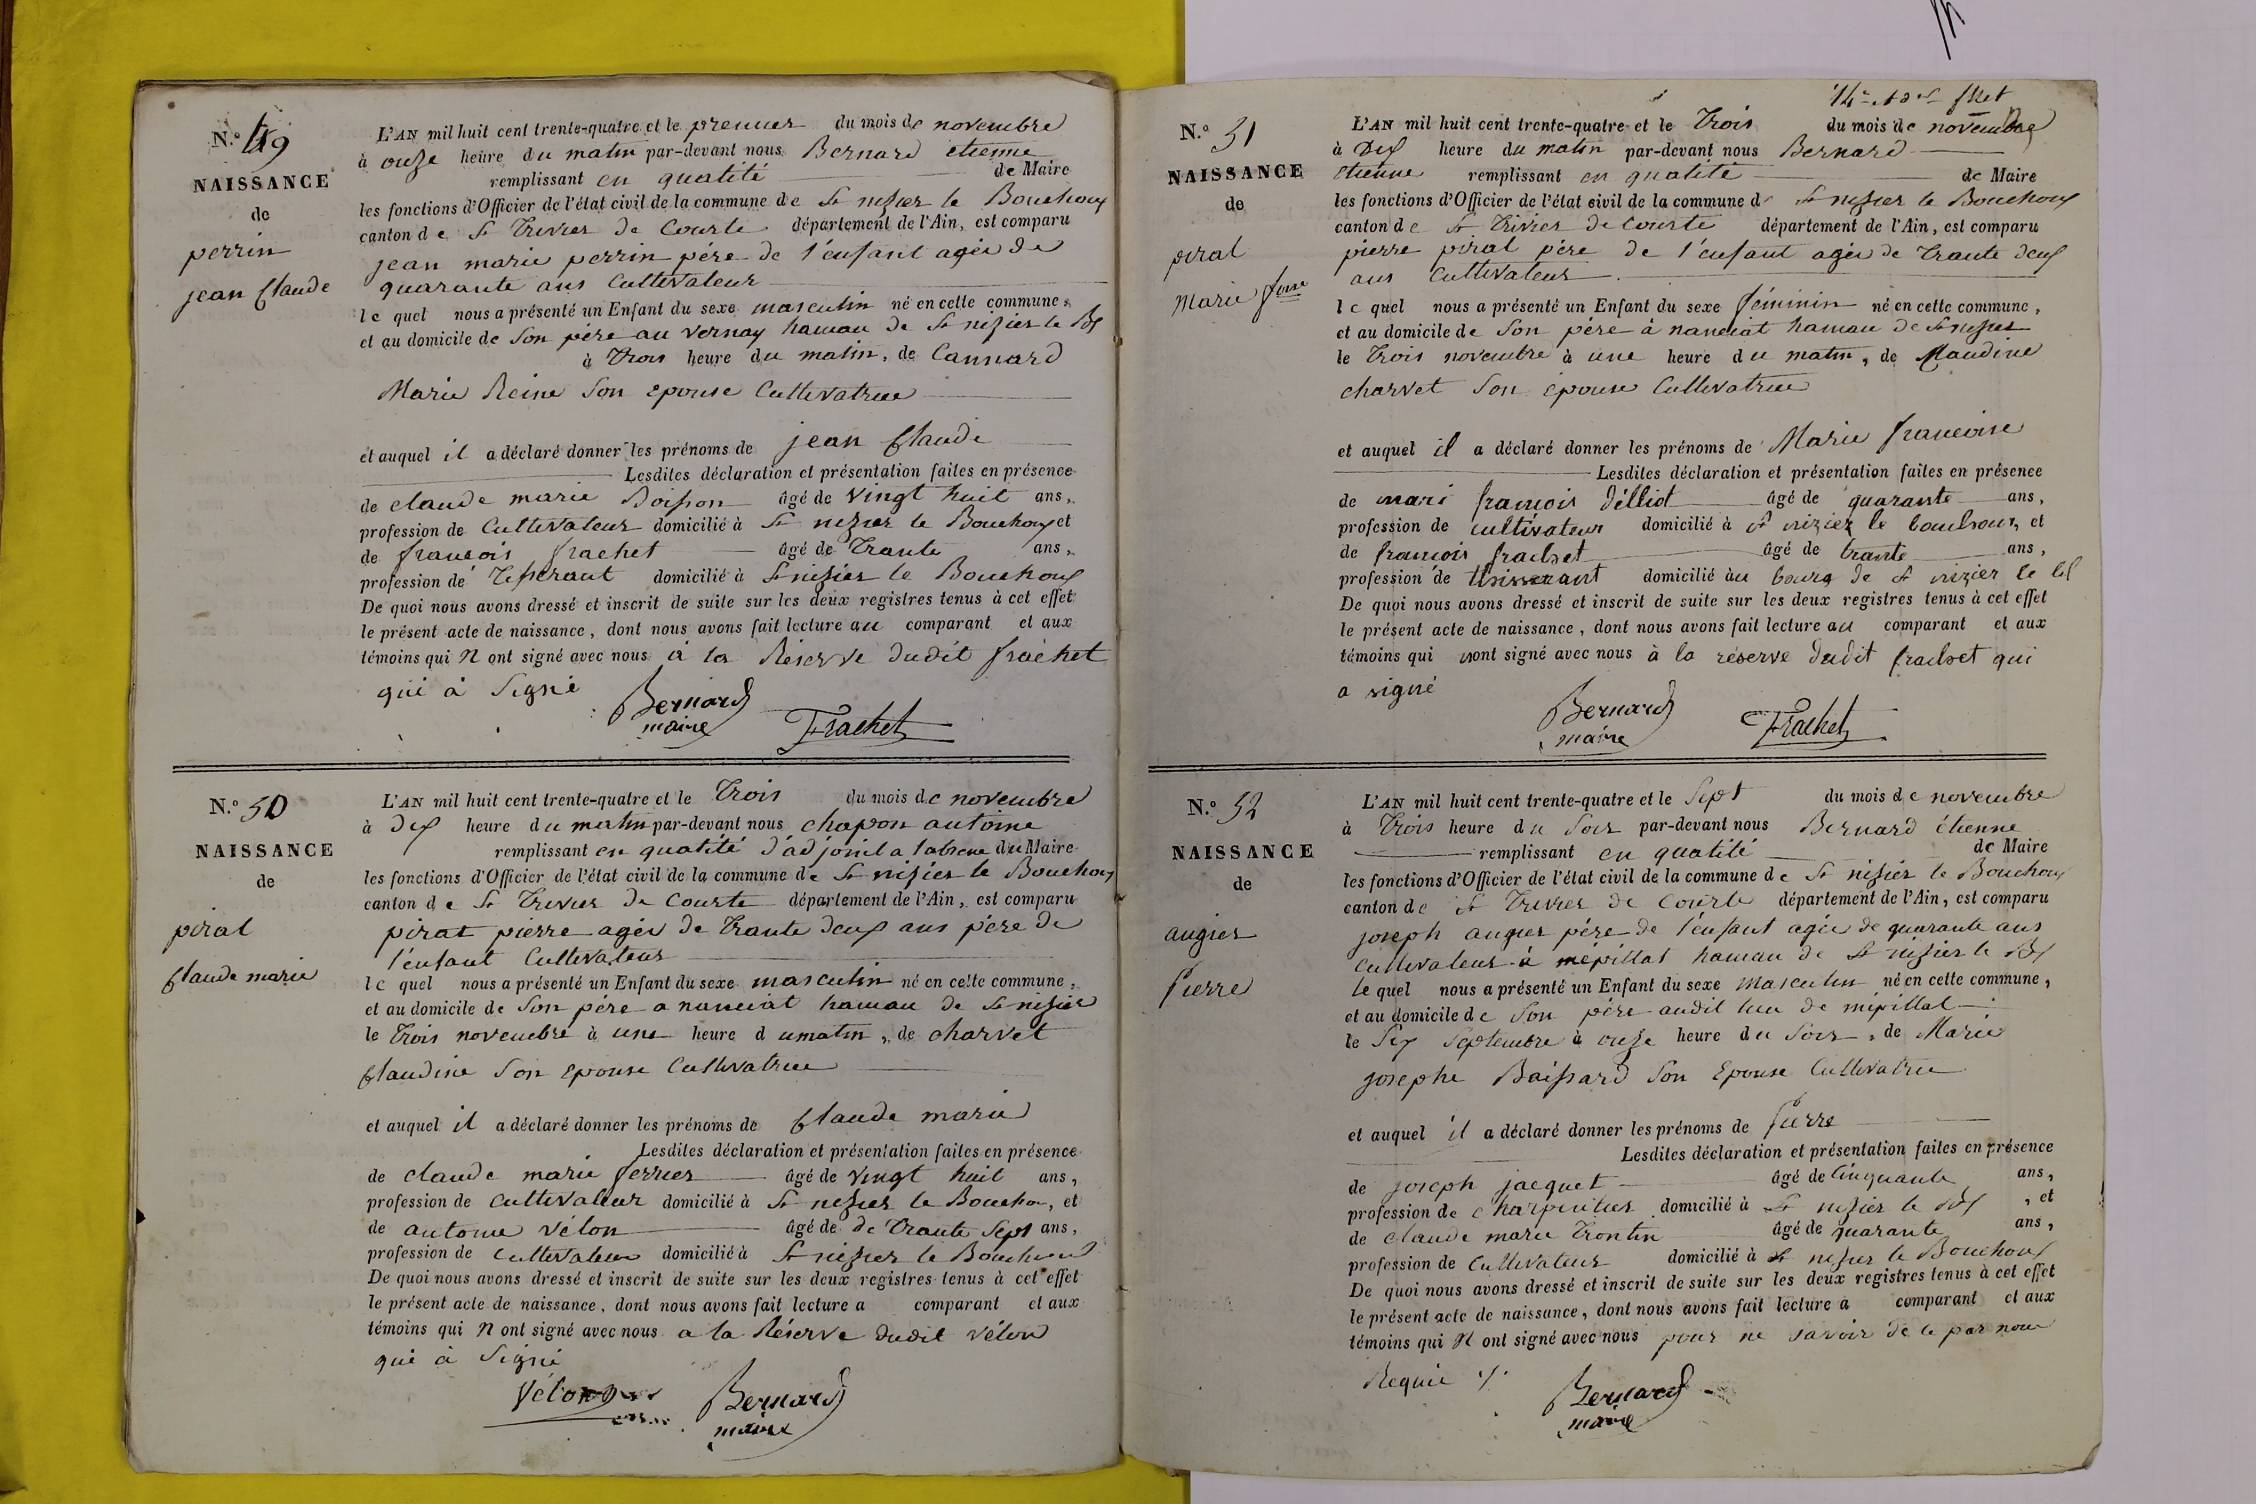 N.° 49
NAISSANCE
de
perrin
jean Claude
L'AN mil huit cent trente-quatre et le premier du mois de novembre
à onze heure du matin par-devant nous Bernard etienne
remplissant en qualité de Maire
les fonctions d'Officier de l'état civil de la commune de St nizier le Bouchoux
canton de St Trivier de Courte département de l'Ain, est comparu
jean marie perrin pére de l'enfant agée de
quarante ans Cultivateur
le quel nous a présenté un Enfant du sexe masculin né en cette commune,
et au domicile de Son pére au vernay hamau de St nizier le Bx
à Trois heure du matin, de Cannard
Marie Reine Son epouse Cultivatrice
et auquel il a déclaré donner les prénoms de jean Claude
Lesdites déclaration et présentation faites en présence
de claude marie Boisson âgé de vingt huit ans,
profession de Cultivateur domicilié à St nizier le Bouchoux et
de francois frachet âgé de Trante ans,
profession de Tisserant domicilié à St nizier le Bouchoux
De quoi nous avons dressé et inscrit de suite sur les deux registres tenus à cet effet
le présent acte de naissance, dont nous avons fait lecture au comparant et aux
témoins qui n ont signé avec nous à la Réserve dudit frachet
qui à Signé
Bernard
maire
Frachet
N.° 50
NAISSANCE
de
piral
Claude marie
L'AN mil huit cent trente-quatre et le Trois du mois de novembre
à dix heure du matin par-devant nous chapon antoine
remplissant en qualité d'adjoint a l'absence du Maire
les fonctions d'Officier de l'état civil de la commune de St nizier le Bouchoux
canton de St Trivier de Courte département de l'Ain, est comparu
pirat pierre agée de Trante deux ans pére de
l'enfant Cultivateur
le quel nous a présenté un Enfant du sexe masculin né en cette commune,
et au domicile de Son pére a nanciat hamau de St nizier
le Trois novembre à une heure du matin, de charvet
Claudine Son epouse Cultivatrice
et auquel il a déclaré donner les prénoms de Claude marie
Lesdites déclaration et présentation faites en présence
de claude marie ferrier âgé de vingt huit ans,
profession de cultivateur domicilié à St nizier le Bouchou, et
de antoine vélon âgé de de Trante Sept ans,
profession de cultivateur domicilié à St nizier le Bouchoux
De quoi nous avons dressé et inscrit de suite sur les deux registres tenus à cet effet
le présent acte de naissance, dont nous avons fait lecture a comparant et aux
témoins qui n ont signé avec nous a la Réserve dudit vélon
qui à Signé
Vélon
Bernard
maire
N.° 51
NAISSANCE
de
piral
Marie foise
L'AN mil huit cent trente-quatre et le Trois du mois de novembre
à Dix heure du matin par-devant nous Bernard
etienne remplissant en qualité de Maire
les fonctions d'Officier de l'état civil de la commune d St nizier le Bouchoux
canton de St Trivier de Courte département de l'Ain, est comparu
pierre piral pére de l'enfant agée de Trante deux
ans Cultivateur
le quel nous a présenté un Enfant du sexe féminin né en cette commune,
et au domicile de Son pére à nanciat hamau de St nizier
le Trois novembre à une heure du matin, de Claudine
charvet Son epouse Cultivatrice
et auquel il a déclaré donner les prénoms de Marie francoise
Lesdites déclaration et présentation faites en présence
de mari françois Délliot âgé de quarante ans,
profession de cultivateur domicilié à St nizier le bouchoux, et
de françois frachet âgé de trante ans,
profession de domicilié au bourg de St nizier le bx
De quoi nous avons dressé et inscrit de suite sur les deux registres tenus à cet effet
le présent acte de naissance, dont nous avons fait lecture au comparant et aux
témoins qui nont signé avec nous à la réserve dudit frachet qui
a signé
Bernard
maire
Frachet
N.° 52
NAISSANCE
de
augier
Pierre
L'AN mil huit cent trente-quatre et le Sept du mois de novembre
à Trois heure du Soir par-devant nous Bernard étienne
remplissant en qualité de Maire
les fonctions d'Officier de l'état civil de la commune de St nizier le Bouchoux
canton de St Trivier de Courte département de l'Ain, est comparu
joseph augier pére de l'enfant agée de quarante ans
Cultivateur à mépillat hamau de St nizier le Bx
le quel nous a présenté un Enfant du sexe Masculin né en cette commune,
et au domicile de Son pére audit lieu de mépillat
le Six Septembre à onze heure du Soir, de Marie
josephe Baissard Son Epouse Cultivatrice
et auquel il a déclaré donner les prénoms de Pierre
Lesdites déclaration et présentation faites en présence
de joseph jacquet âgé de Cinquante ans,
profession de charpentier domicilié à St nizier le Bx, et
de claude marie Trontin âgé de quarante ans,
profession de Cultivateur domicilié à St nizier le Bouchoux
De quoi nous avons dressé et inscrit de suite sur les deux registres tenus à cet effet
le présent acte de naissance, dont nous avons fait lecture a comparant et aux
témoins qui n ont signé avec nous pour ne savoir de ce par nous
Requie
Bernard
maire